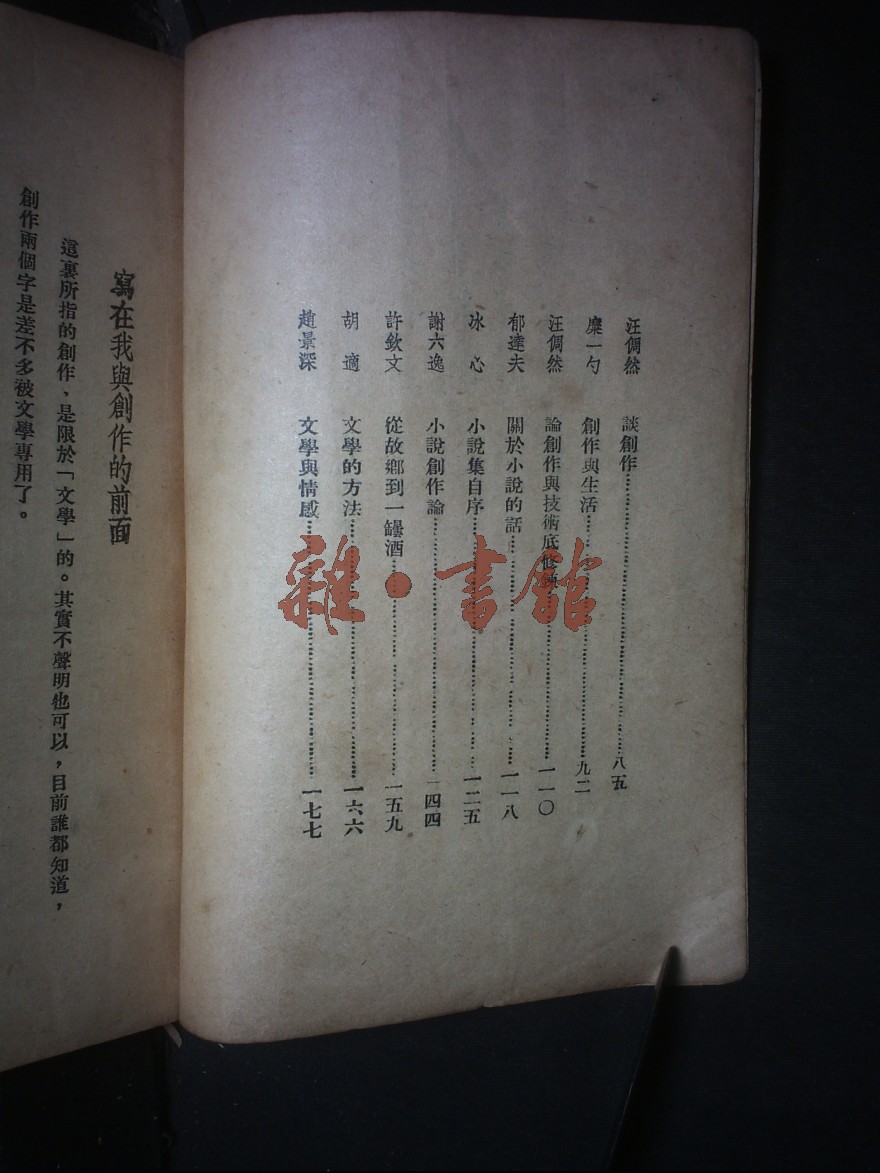 汪倜然 談創作 八五
糜一勺 創作與生活 九二
汪倜然 論創作與技術底修養 一一〇
郁達夫 關於小說的話 一一八
冰心 小說集自序 一二五
謝六逸 小說創作論 一四四
許欽文 從故鄉到一罎酒 一五九
胡適 文學的方法 一六六
趙景深 文學與情感 一七七
雜·書館
寫在我與創作的前面
這裏所指的創作、是限於「文學」的。其實不聲明也可以，目前誰都知道，
創作兩個字是差不多被文學專用了。